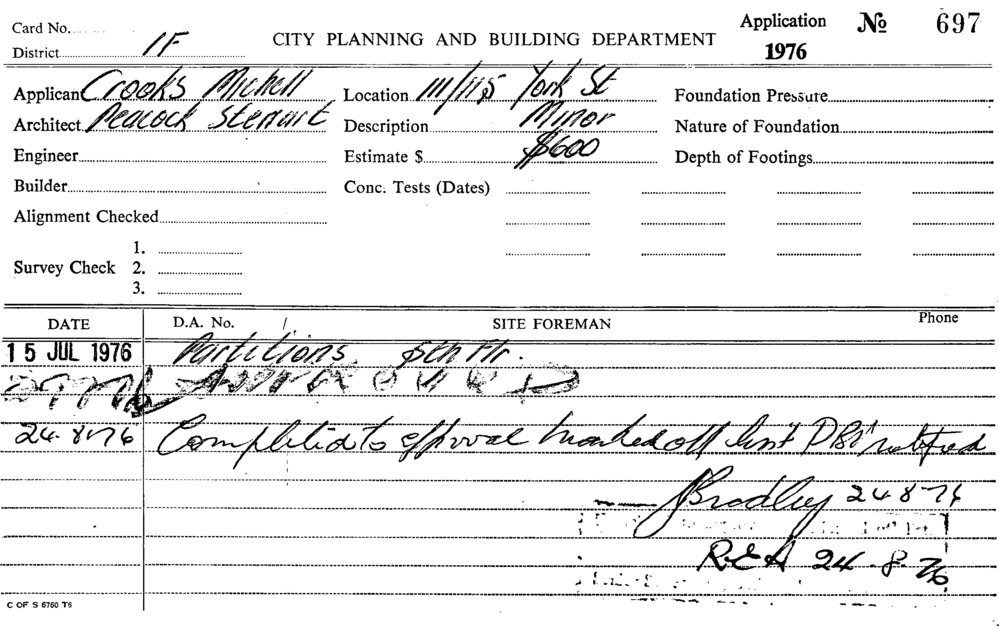 Card No.
District 1F
CITY PLANNING AND BUILDING DEPARTMENT
Application
1976
№ 697
Applicant Crooks Michell
Location 111/115 York St
Foundation Pressure
Architect Peacock Stewart
Description Minor
Nature of Foundation
Engineer
Estimate $ $600
Depth of Footings
Builder
Conc. Tests (Dates)
Alignment Checked
Survey Check
1.
2.
3.
DATE
D.A. No. /
SITE FOREMAN
Phone
15 JUL 1976 Partitions Flr.
24-8-76 Completed to approval marked off list notified
JBradley 24 8-76
R.E.A 24-8-76
C OF S 6760 T6